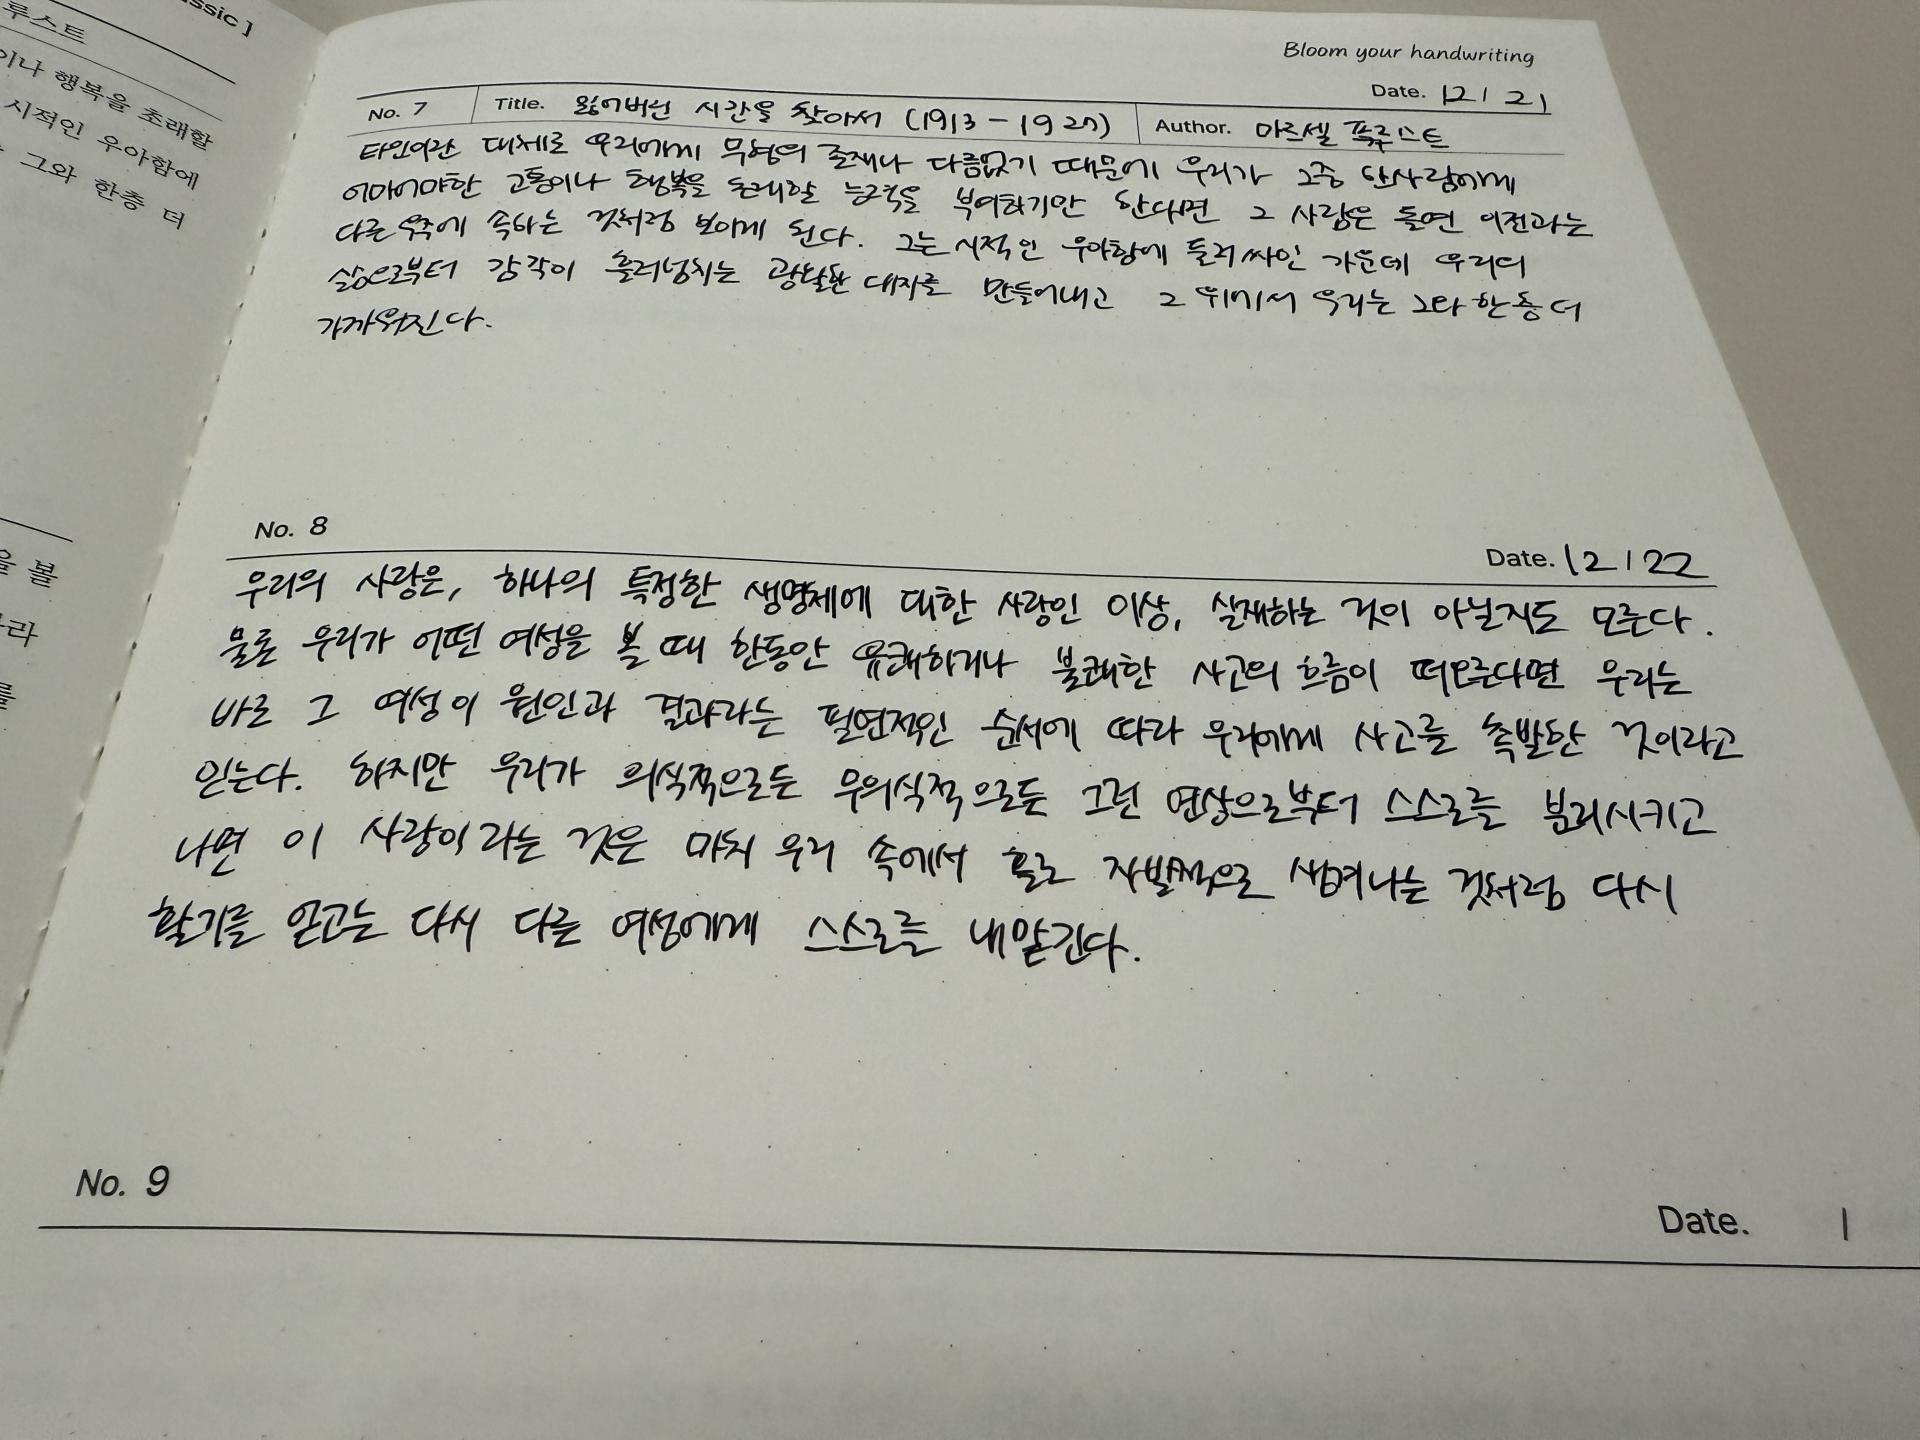 ssic ]
루스트
이나 행복을 초래할
시적인 우아함에
그와 한층 더
을 볼
라
를
Bloom your handwriting
Date. 12 / 21
No. 7 Title. 잃어버린 시간을 찾아서 (1913 - 1927) Author. 마르셀 프루스트
타인이란 대체로 우리에게 무형의 존재나 다름없기 때문에 우리가 그중 한사람에게
어마어마한 고통이나 행복을 초래할 능력을 부여하기만 한다면 그 사람은 돌연 이전과는
다른 우주에 속하는 것처럼 보이게 된다. 그는 시적인 우아함에 둘러싸인 가운데 우리의
삶으로부터 감각이 흘러넘치는 광활한 대지를 만들어내고 그 위에서 우리는 그와 한층 더
가까워진다.
No. 8
Date. 12 / 22
우리의 사랑은, 하나의 특정한 생명체에 대한 사랑인 이상, 실재하는 것이 아닐지도 모른다.
물론 우리가 어떤 여성을 볼 때 한동안 유쾌하거나 불쾌한 사고의 흐름이 떠오른다면 우리는
바로 그 여성이 원인과 결과라는 필연적인 순서에 따라 우리에게 사고를 촉발한 것이라고
믿는다. 하지만 우리가 의식적으로든 무의식적으로든 그런 연상으로부터 스스로를 분리시키고
나면 이 사랑이라는 것은 마치 우리 속에서 홀로 자발적으로 생겨나는 것처럼 다시
활기를 얻고는 다시 다른 여성에게 스스로를 내맡긴다.
No. 9
Date. /